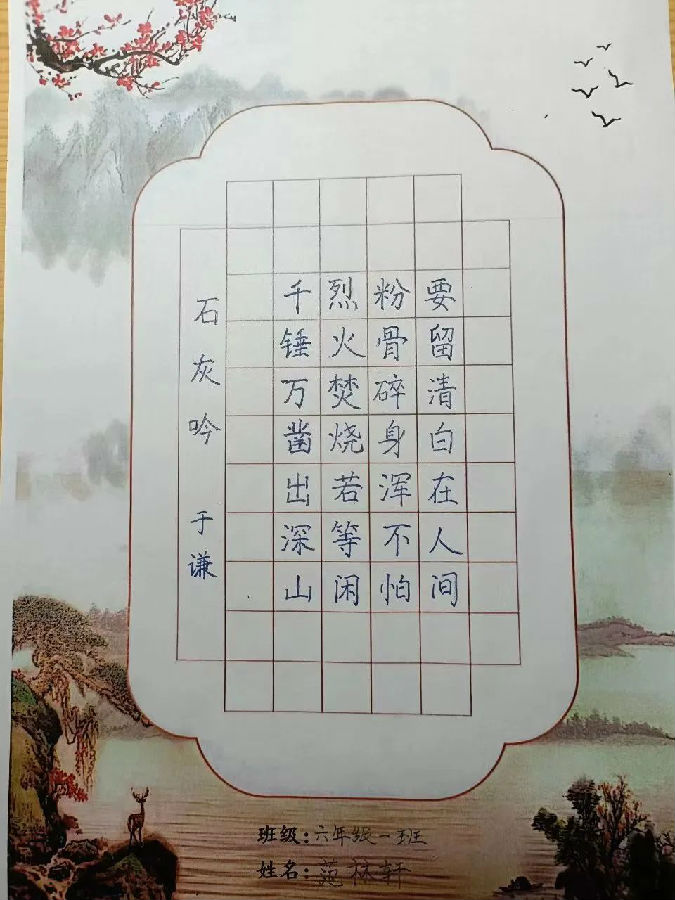 石灰吟 于谦
千锤万凿出深山
烈火焚烧若等闲
粉骨碎身浑不怕
要留清白在人间
班级：六年级一班
姓名：范林轩